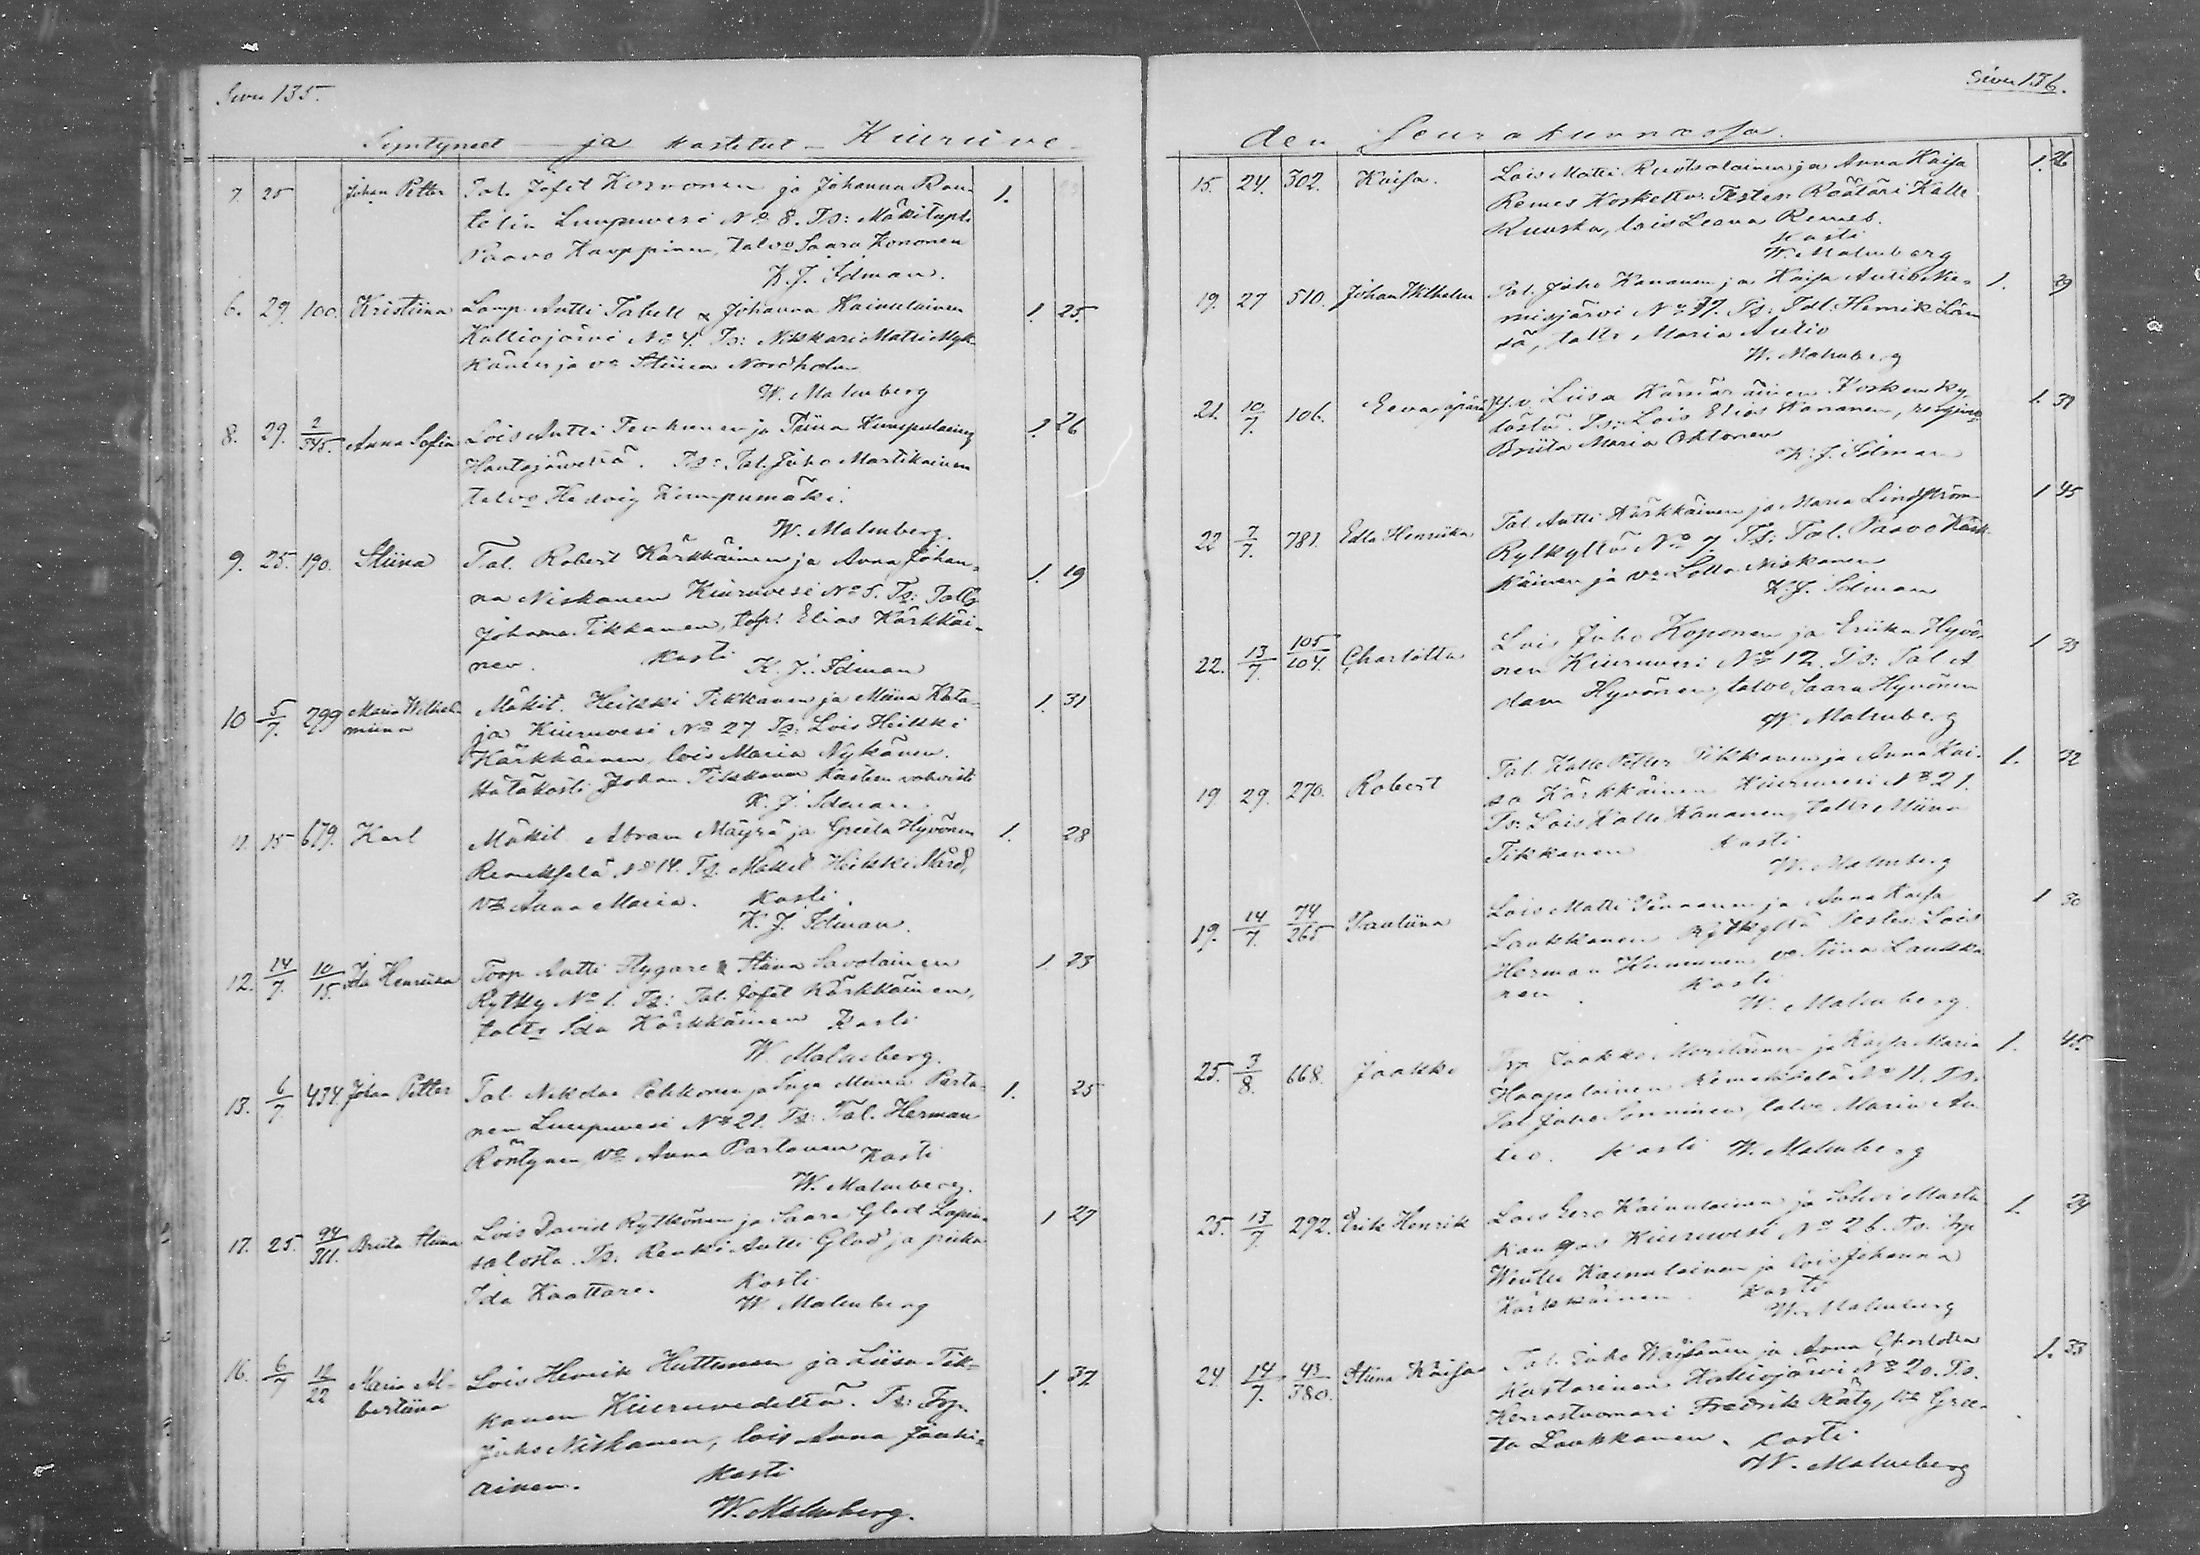 Sivu 135.
Syntyneet ja kastetut Kiuruve-
7. 25 Johan Petter Tal. Jofet Korvonen ja Johanna Rau- 1.
telin Luupuvesi No 8. Ts: Mäkitupl.
Paavo Kauppinen, talvo Saara Kononen
K. J. Idman.
6. 29. 100. Kristiina Lamp. Antti Tabell & Johanna Kainulainen 1. 25.
Kalliojärvi No 4. Ts: Nikkari Matti Myk-
känen ja vo Stiina Nordholm
W. Malmberg
8. 29. 2/345. Anna Sofia Lois Antti Tenhunen ja Tiina Kumpulainen 1. 26
Hautajärveltä. Ts: Tal. Juho Martikainen
talvo Hedvig Kumpumäki.
W. Malmberg.
9. 25. 190. Stiina Tal. Robert Kärkkäinen ja Anna Johan- 1. 19
na Niskanen Kiuruvesi No 5. Ts: Tallr
Johanna Tikkanen, talp: Elias Kärkkäi-
nen. Kasti K. J. Idman
10 5/7. 299 Maria Wilhel- Mäkit. Heikki Tikkanen ja Miina Kata- 1. 31
miina ja Kiuruvesi No 27 Ts: Lois Heikki
Kärkkäinen, lois Maria Nykänen.
Hätäkasti Johan Tikkanen Kasteen vahvisti
K. J. Idman.
11. 15 679. Karl Mäkit. Abram Mäyrä ja Greeta Hyvönen 1. 28
Remeksela No 14. Ts. Mäkit Heikki Mård,
vo Anna Maria. Kasti.
K. J. Idman.
12. 14/7. 10/15. Ida Henriika Torp Antti Flygare & Stiina Savolainen 1. 23
Rytky No 1. Ts: Tal. Jofet Kärkkäinen,
taltr Ida Kärkkäinen Kasti
W. Malmberg.
13. 6/7 434. Johan Petter Tal. Nikolai Pekkonen ja Inga Miina Parta- 1. 25
nen Luupuvesi No 21. Ts: Tal. Herman
Röntynen, vo Anna Partanen Kasti
W. Malmberg.
17. 25. 94/311. Briita Stiina Lois David Rytkönen ja Saara Glad Lapin- 1 27
salosta. Ts: Renki Antti Glad ja piika
Ida Kaattari. Kasti
W. Malmberg
16. 6/7 12/22 Maria Al- Lois Henrik Huttunen ja Liisa Tik- 1. 37
bertiina kanen Kiuruvedeltä. Ts: Trp.
Juho Niskanen, lois Anna Jauhi-
ainen. Kasti
W. Malmberg.
Sivu 136.
den Seurakunnassa.
15. 24. 302. Kaisa. Lois Matti Ruotsalainen ja Anna Kaisa 1. 26
Remes Koskelta. Testes: Räätäri Kalle
Ruuska, lois Leena Remes.
Kasti
W. Malmberg
19. 27 510. Johan Wilhelm Tal. Juho Kananen ja Kaisa Autio Nie- 1. 39
misjärvi No 37. Ts: Tal. Henrik Läm
sä, taltr Maria Autio
W. Malmberg
21. 10/7. 106. Eeva äpärä Y.v. Liisa Kämäräinen Koskenky- 1. 31
lästä. Ts: Lois Elias Kananen,
Briita Maria Ahtonen
K. J. Idman
22 7/7. 781. Edla Henriika Tal Antti Kärkkäinen ja Maria Lindström 1 45
Rytkyltä No 7. Ts: Tal. Paavo Kärk-
käinen ja vo Lotta Niskanen
K. J. Idman
22. 13/7. 105/104. Charlotta Lois Juho Koponen ja Eriika Hyvö- 1 33
nen Kiuruvesi No 12. Ts: Tal A
dam Hyvönen, talvo Saara Hyvönen
W. Malmberg
19 29. 270. Robert Tal. Kalle Petter Tikkanen ja Anna Kai- 1. 32
sa Kärkkäinen Kiuruvesi No 21.
Ts: Lois Kalle Kananen, taltr Miina
Tikkanen Kasti
W. Malmberg
19. 14/7. 74/265 Pauliina Lois Matti Pennanen ja Anna Kaisa 1 30
Laukkanen Rytkyltä Testes: Lois
Herman Huuunen vo Tiina Laukka
nen. Kasti
W. Malmberg.
25. 3/8. 668. Jaakko Trp Jaakko ja Kaisa Maria 1. 45.
Haapalainen Remekselä No 11. Ts.
Tal Juho Sonninen, talvo Maria Au
tio. Kasti W. Malmberg
25. 13/7. 292. Erik Henrik Lois Eero Kainulainen ja Sohvi Musta 1. 24
kangas Kiuruvesi No 26. Ts. Trp
Kainulainen ja lois Johanna
Kärkkäinen. Kasti
W. Malmberg
24 14/7. 43/380. Stiina Kaisa Tal. Juho Väisänen ja Anna Charlotta 1. 33
Kastarinen Kalliojärvi No 20. Ts.
Herrastuomari Fredrik Räty, vo Gree-
ta Laukkanen. Kasti.
W. Malmberg